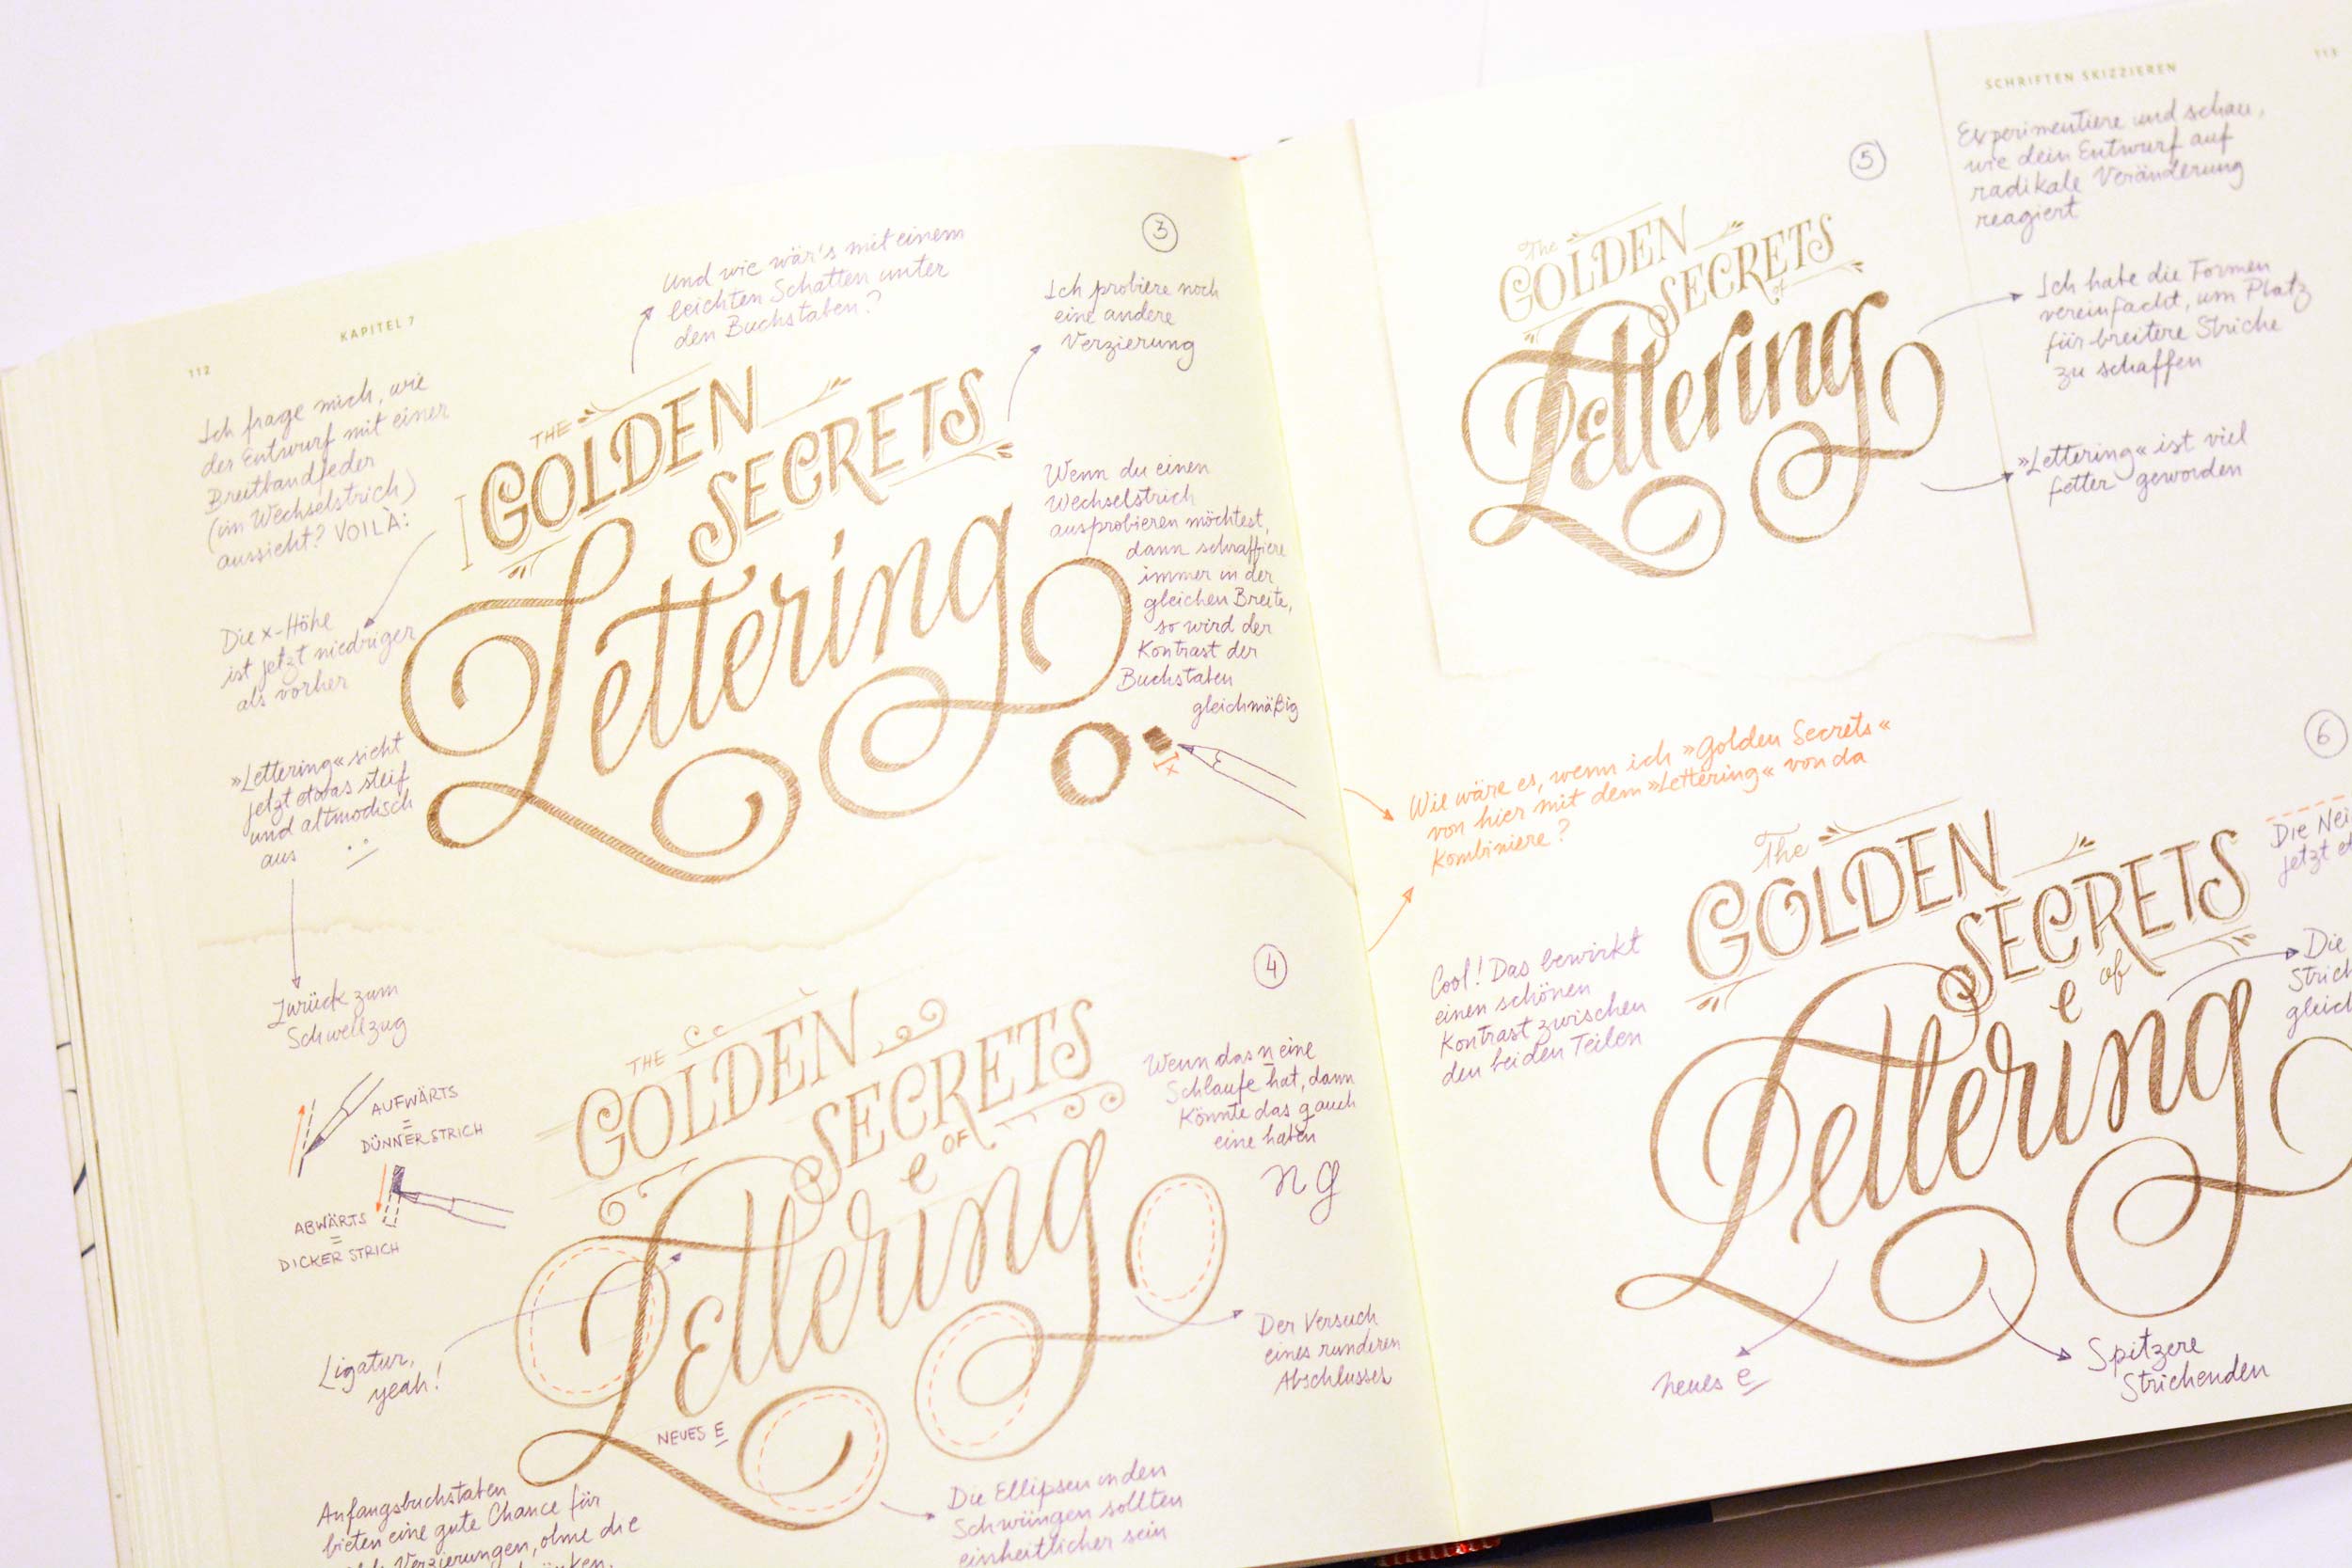 112
KAPITEL 7
Ich frage mich, wie
der Entwurf mit einer
Breitbandfeder
(im Wechselstrich)
aussieht? VOILÀ:
Die x-Höhe
ist jetzt niedriger
als vorher
»Lettering« sieht
jetzt etwas steif
und altmodisch
aus
Zurück zum
Schwellzug
AUFWÄRTS
=
DÜNNER STRICH
ABWÄRTS
=
DICKER STRICH
Ligatur,
yeah!
Anfangsbuchstaben
bieten eine gute Chance für
Verzierungen, ohne die
Und wie wär's mit einem
leichten Schatten unter
den Buchstaben?
3
Ich probiere noch
eine andere
Verzierung
THE
GOLDEN
SECRETS
Lettering
Wenn du einen
Wechselstrich
ausprobieren möchtest,
dann schraffiere
immer in der
gleichen Breite,
so wird der
Kontrast der
Buchstaben
gleichmäßig
x
4
THE
GOLDEN
SECRETS
OF
e
Lettering
Wenn das n eine
Schlaufe hat, dann
könnte das g auch
eine haben
n g
Der Versuch
eines runderen
Abschlusses
NEUES E
Die Ellipsen in den
Schwüngen sollten
einheitlicher sein
SCHRIFTEN SKIZZIEREN
113
5
The
GOLDEN
SECRETS
of
Lettering
Experimentiere und schau,
wie dein Entwurf auf
radikale Veränderung
reagiert
Ich habe die Formen
vereinfacht, um Platz
für breitere Striche
zu schaffen
»Lettering« ist viel
fetter geworden
Wie wäre es, wenn ich »Golden Secrets«
von hier mit dem »Lettering« von da
kombiniere?
6
Cool! Das bewirkt
einen schönen
Kontrast zwischen
den beiden Teilen
The
GOLDEN
SECRETS
of
e
Lettering
Die
jetzt
Die
neues e
Spitzere
Strichenden